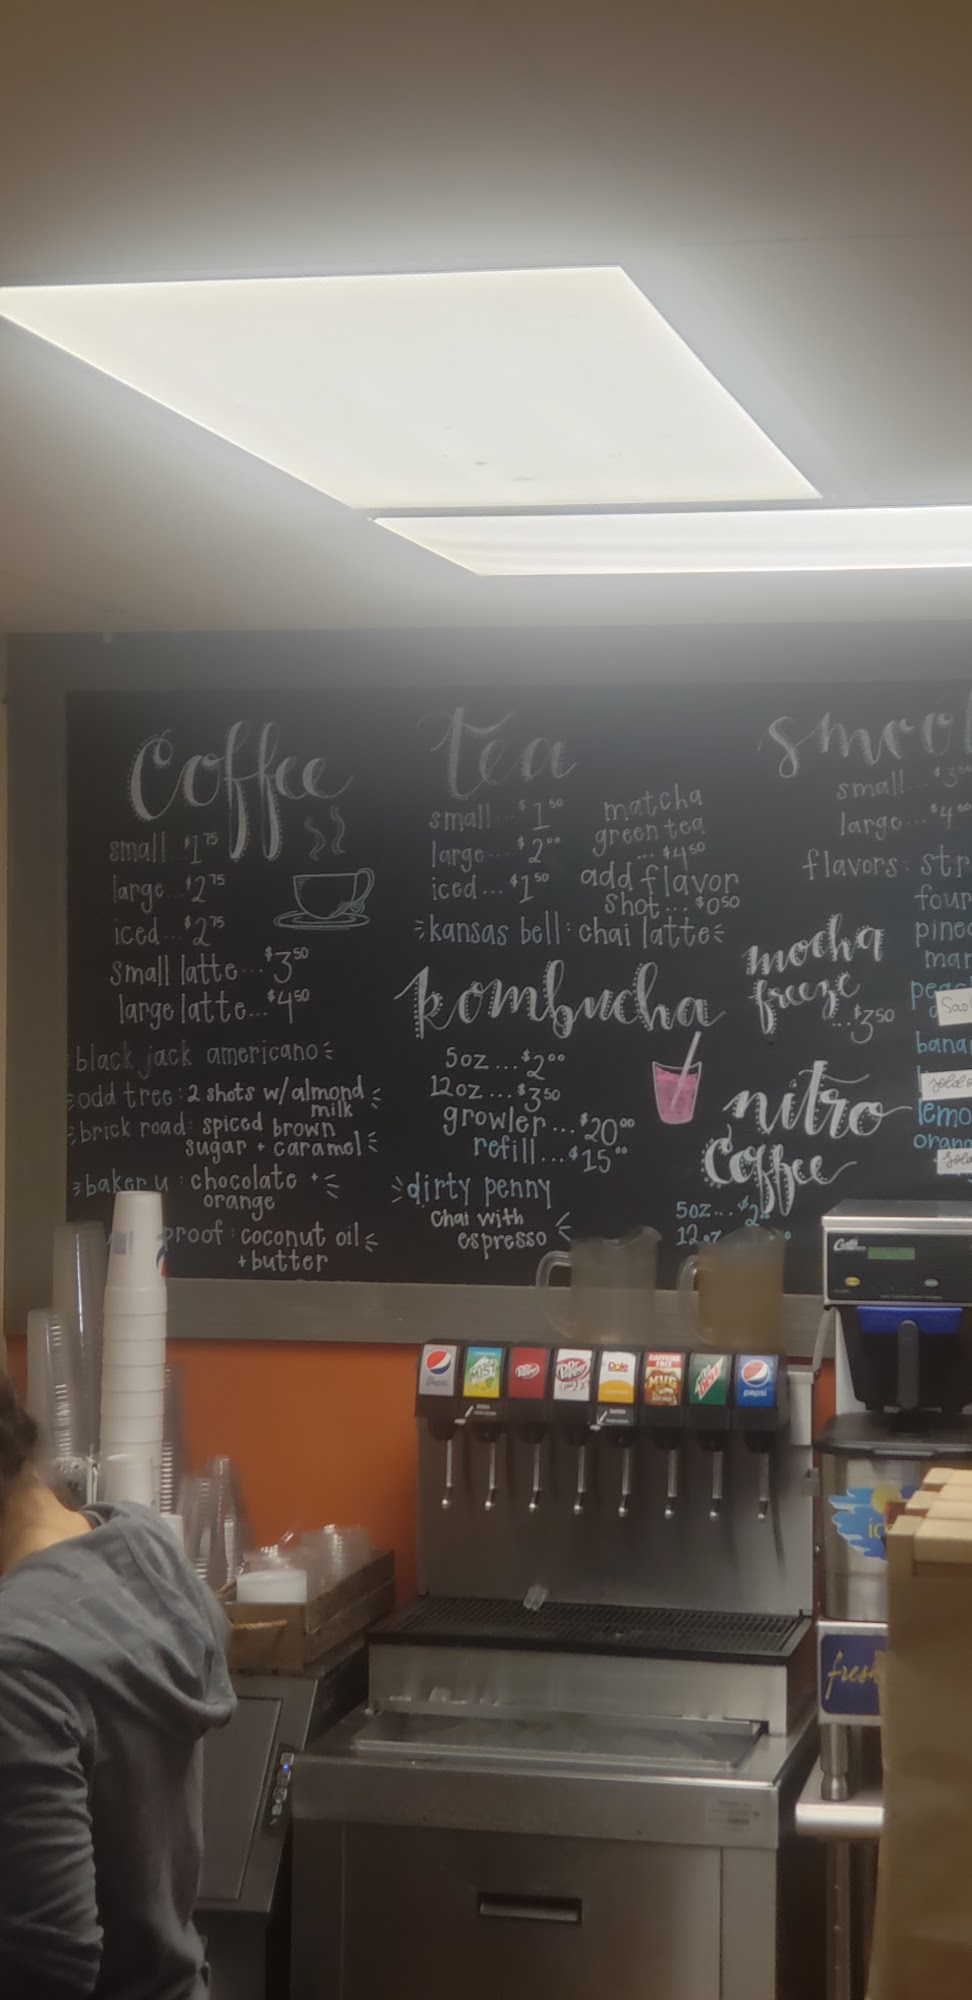 Coffee
small $1.75
large... $2.75
iced... $2.75
small latte... $3.50
large latte... $4.50
black jack americano
odd tree: 2 shots w/almond
milk
brick road: spiced brown
sugar + caramel
baker u: chocolate
orange
proof: coconut oil
+butter
tea
small... $1.50
large... $2.00
iced... $1.50
matcha
green tea
... $4.50
add flavor
shot... $0.50
kansas bell: chai latte
kombucha
5oz... $2.00
12oz... $3.50
growler... $20.00
refill... $15.00
dirty penny
Chai with
espresso
small... $3
large... $4
flavors:
mocha
freeze
... $3.50
nitro
Coffee
5oz... $2
12oz
pepsi
MIST
Dr Pepper
Dole
CAFFEINE
FREE
MUG
pepsi
fresh